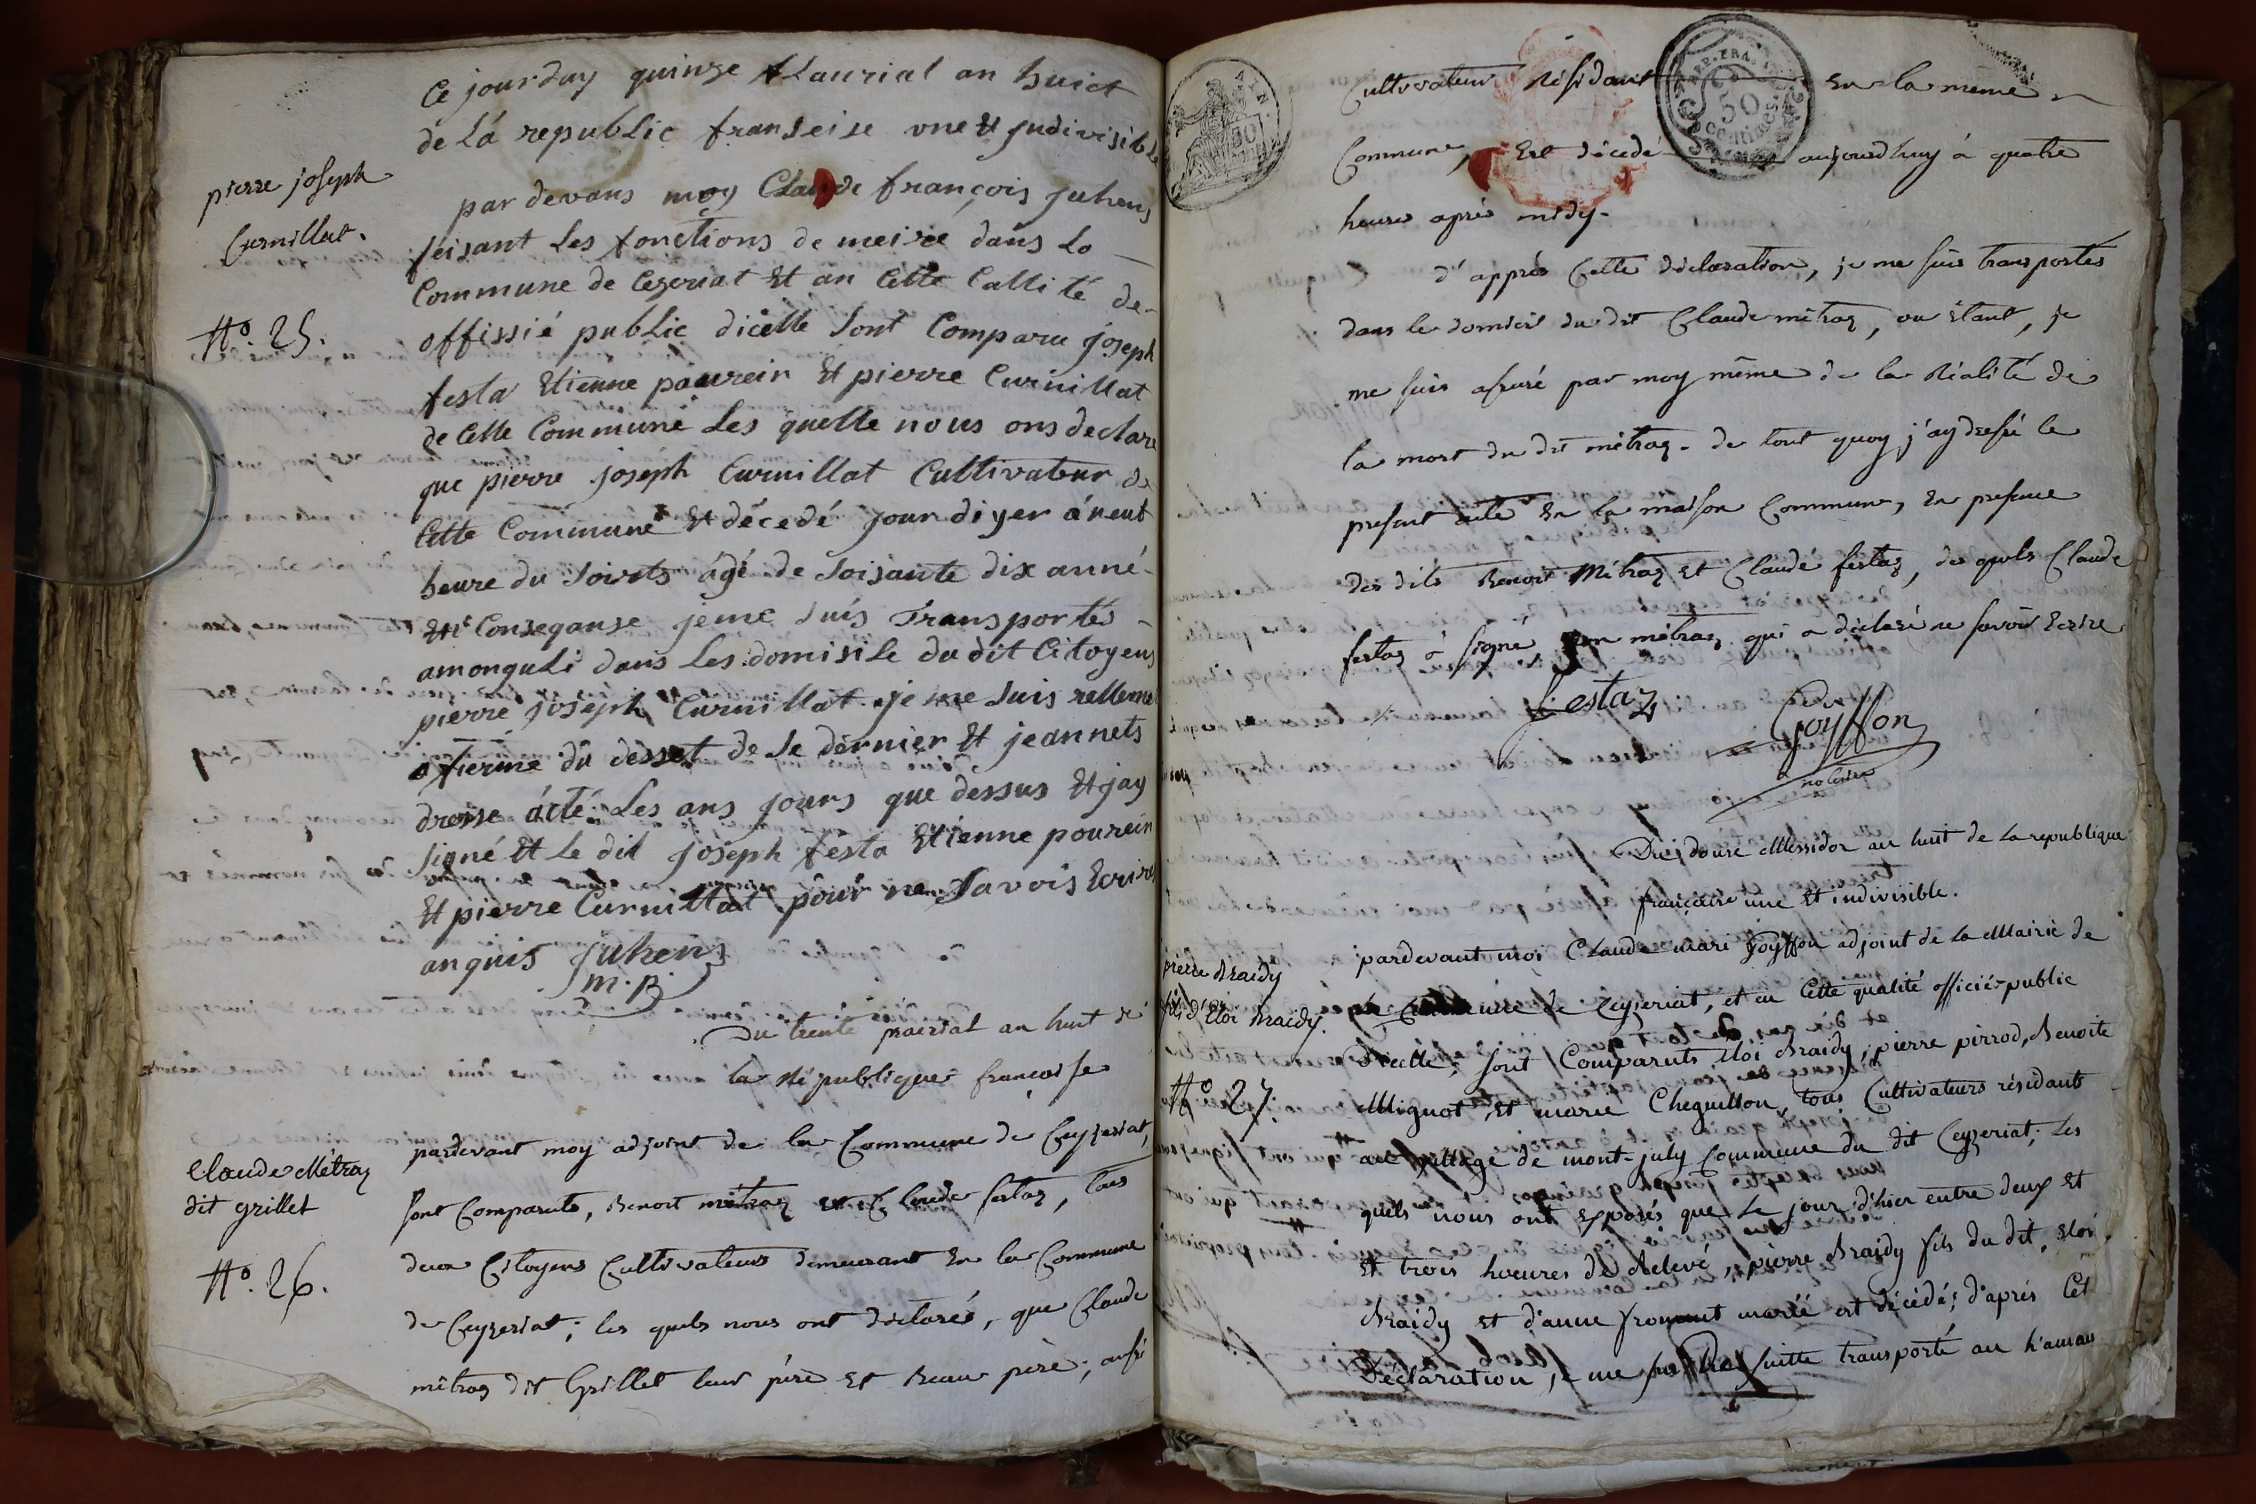 Ce jourduy quinze flaurial an huict
de La republic franseise une et jndivisible
pierre joseph
Curnillat.
N.o 25.
par devans moy Claude françois juhens
feisant Les fonctions de meire dans La
Commune de Ceseriat Et an Cette Callité de
offissié public dicelle Sont Comparu joseph
festa Etienne pourein Et pierre Curnillat
de Cette Commune Les quelle nous ons declare
que pierre joseph Curnillat Cultivateur de
Cette Commune Et décedé jour diyer à neuf
heure du Soirts âgé de Soisante dix anné
Conseqanse jeme Suis Transportés
dans Les domisile du dit Citoyens
pierre joseph Curnillat je me Suis
du desset de Se dernier Et jeannets
dresse acté Les ans jours que dessus Et jay
Signé Et Le dit joseph festa Etienne pourein
Et pierre Curnillat pour ne Savois Ecrire
anquis juhens
m.
Du trente prairial an huit de
la République francoise
Claude Métraz
dit grillet
N.o 26.
pardevant moy adjoint de la Commune de Ceyzeriat,
sont Comparuts, Benoit métraz et Claude festaz, tous
deux Citoyens Cultivateurs demeurant En la Commune
de Ceyzeriat; les quels nous ont déclarés, que Claude
métraz dit Grillet leur père Et Beau père; aussi
Cultivateur Résidant En la même
Commune, Est décedé aujourd'huy à quatre
heures après midy.
d'apprès Cette déclaration, je me suis transportés
dans le domicil du dit Claude métraz, ou étant, je
me suis assuré par moy même de la Réalité de
la mort du dit métraz. de tout quoy j'ay dressé le
present acte En la maison Commune, En presence
des dits Benoit Métraz et Claude festaz, des quels Claude
festaz à signé, non métraz qui a déclaré ne savoir Ecrire
festaz
Goyffon
notaire
Du douze Messidor an huit de la republique
française une Et indivisible.
pierre Braidy
fils d'Eloi Braidy.
N.o 27.
pardevant moi Claude mari Goyffon adjoint de la Mairie de
Commune de Ceyzeriat, et en Cette qualité officiér public
D'icelle, sont Comparuts Eloi Braidy, pierre pirrod, Benoite
Mignot, et marie Cheguillon, tous Cultivateurs résidant
au village de mont-july Commune du dit Ceyzeriat; Les
quels nous ont exposés que Le jour d'hier entre deux Et
Et trois hoeures de Relevé, pierre Braidy fils du dit, Eloi
Braidy et d'anne froment marié est décédé; d'après Cet
Déclaration, je me suis suitte transporté au hámau
REP. FRA.
50
centimes
AYN
50